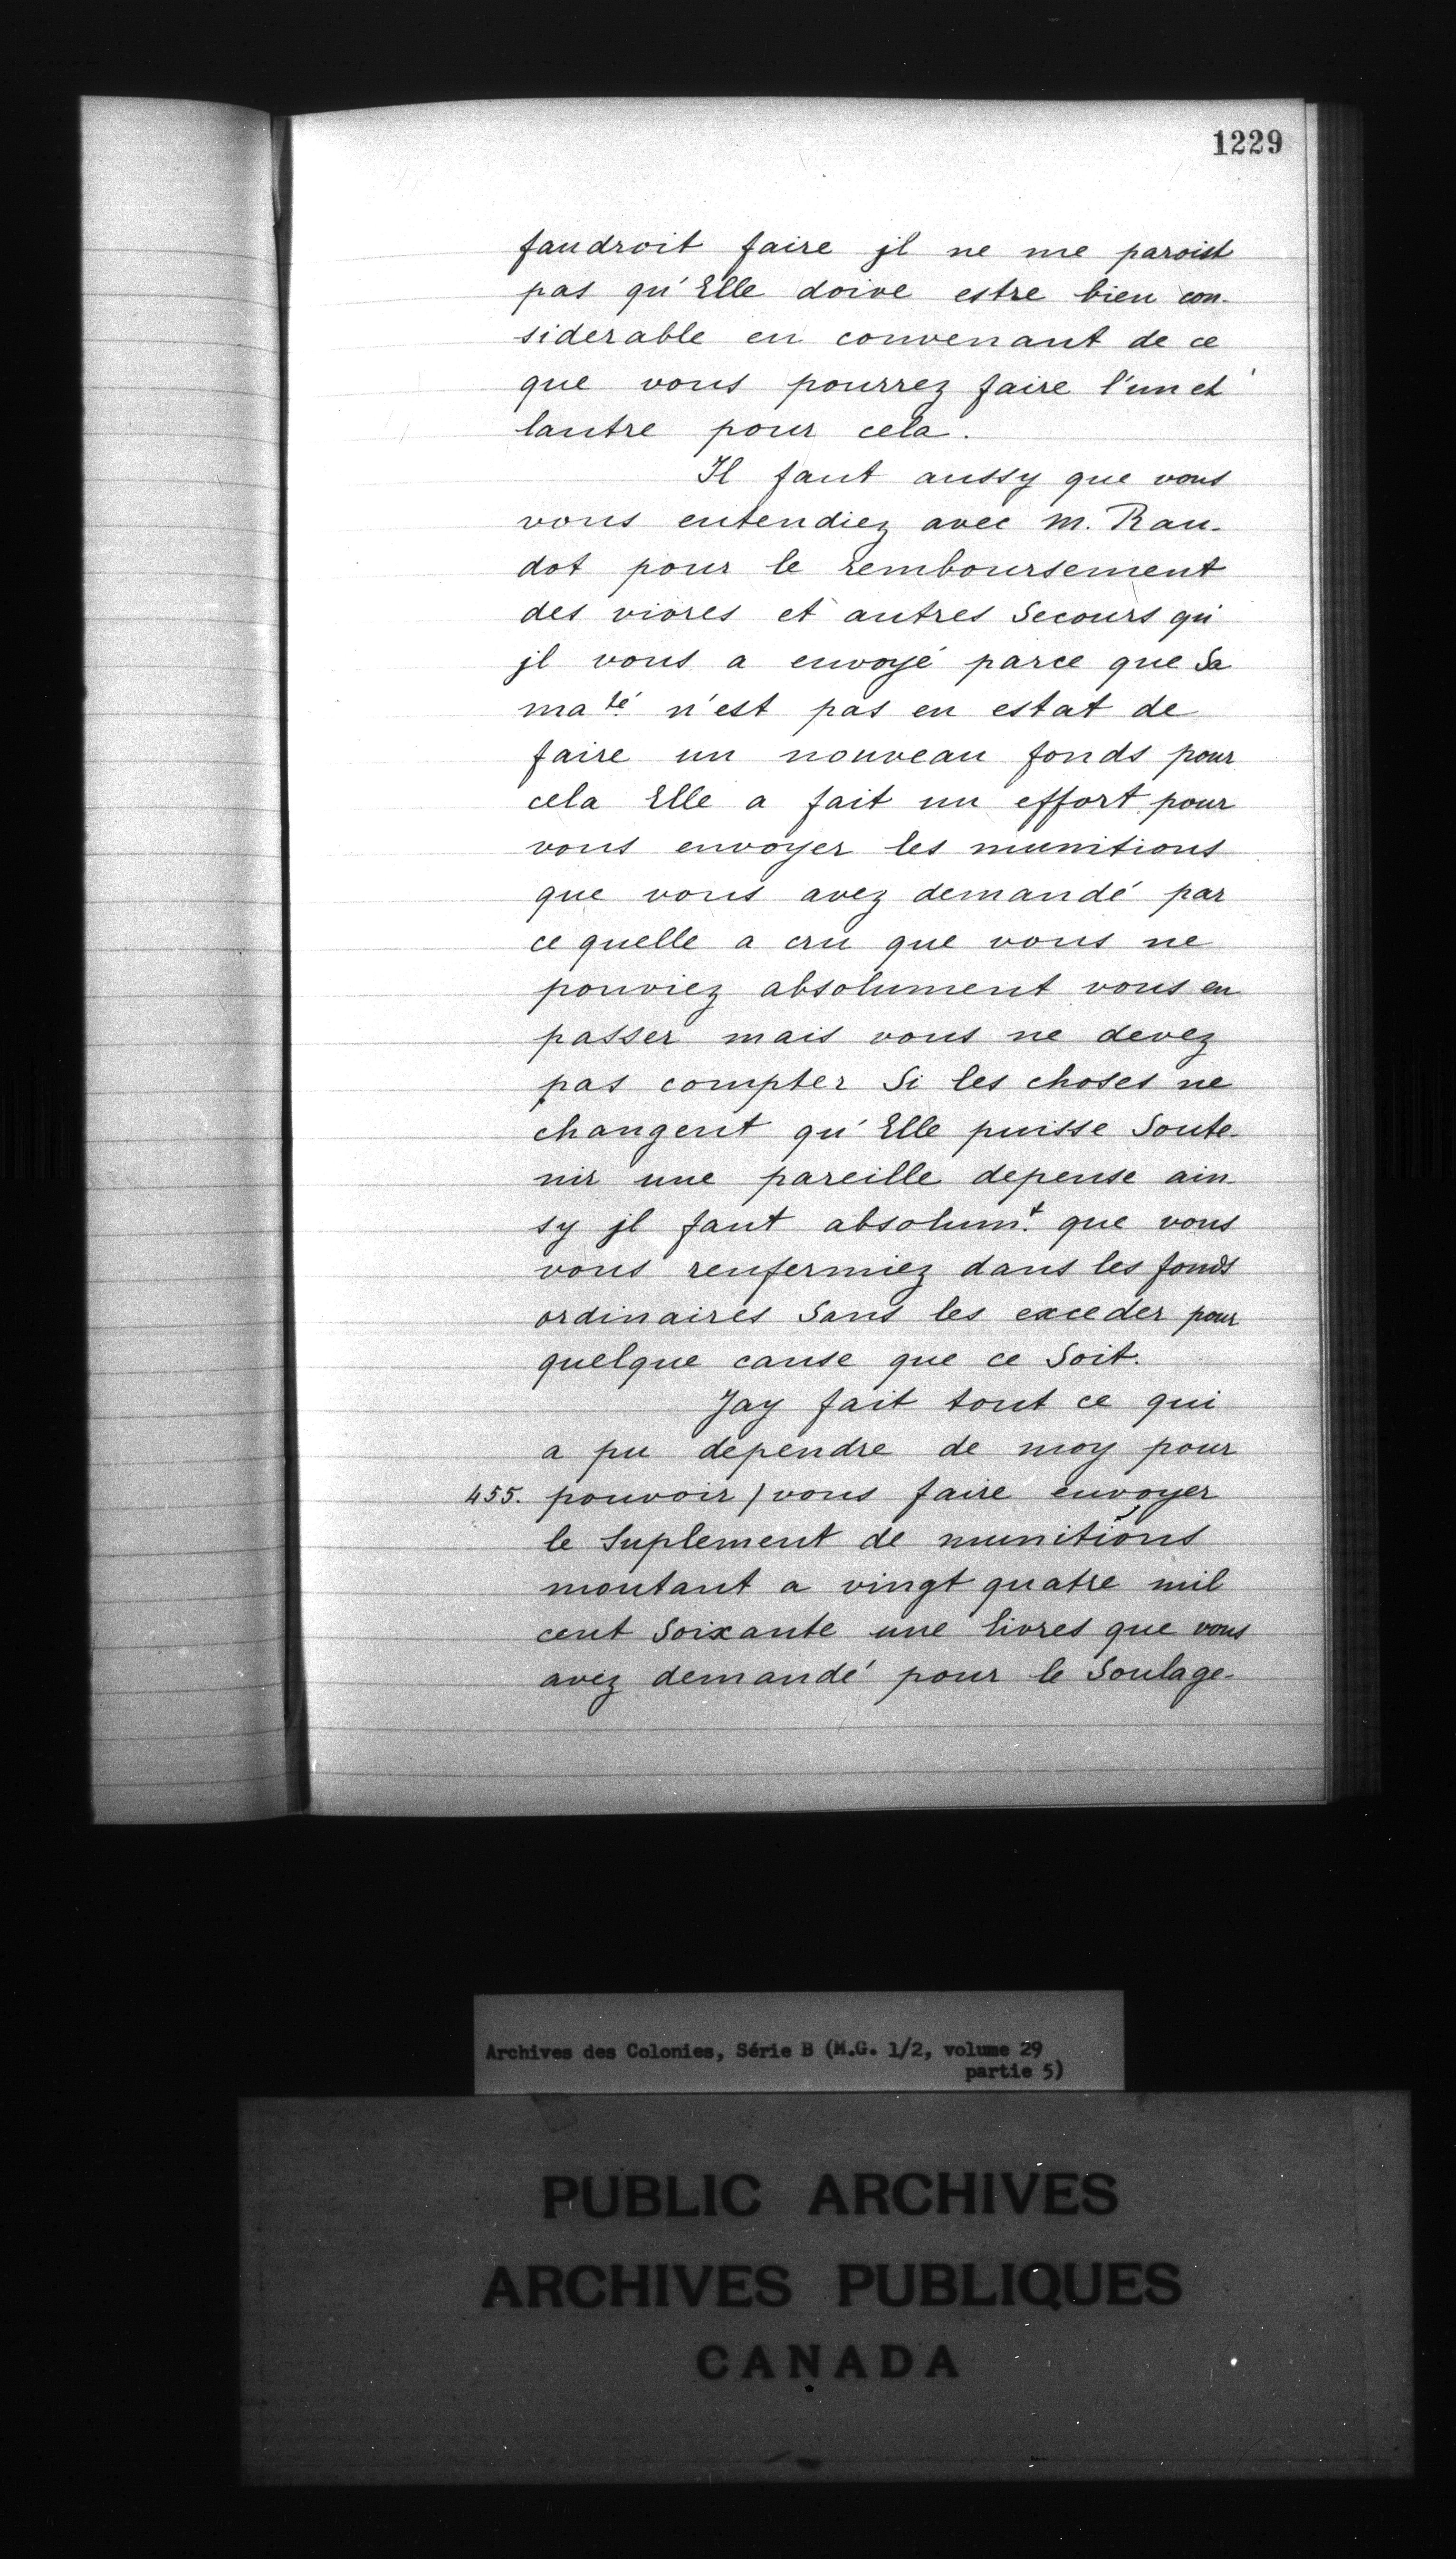 1229
faudroit faire jl ne me paroist
pas qu'Elle doive estre bien con-
siderable en convenant de ce
que vous pourrez faire l'un et
lautre pour cela.
Il faut aussy que vous
vous entendiez avec M. Rau-
dot pour le remboursement
des vivres et autres Secours qu'
jl vous a envoyé parce que Sa
ma.té n'est pas en estat de
faire un nouveau fonds pour
cela Elle a fait un effort pour
vous envoyer les munitions
que vous avez demandé par
ce quelle a cru que vous ne
pouviez absolument vous en
passer mais vous ne devez
pas compter Si les choses ne
changent qu'Elle puisse Soute-
nir une pareille depense ain
sy jl faut absolum.t que vous
vous renfermiez dans les fonds
ordinaires Sans les exceder pour
quelque cause que ce Soit.
Jay fait tout ce qui
a pu dependre de moy pour
455. pouvoir / vous faire envoyer
le Suplement de munitions
montant a vingt quatre mil
cent Soixante une livres que vous
avez demandé pour le Soulage-
Archives des Colonies, Série B (M.G. 1/2, volume 29
partie 5)
PUBLIC ARCHIVES
ARCHIVES PUBLIQUES
CANADA